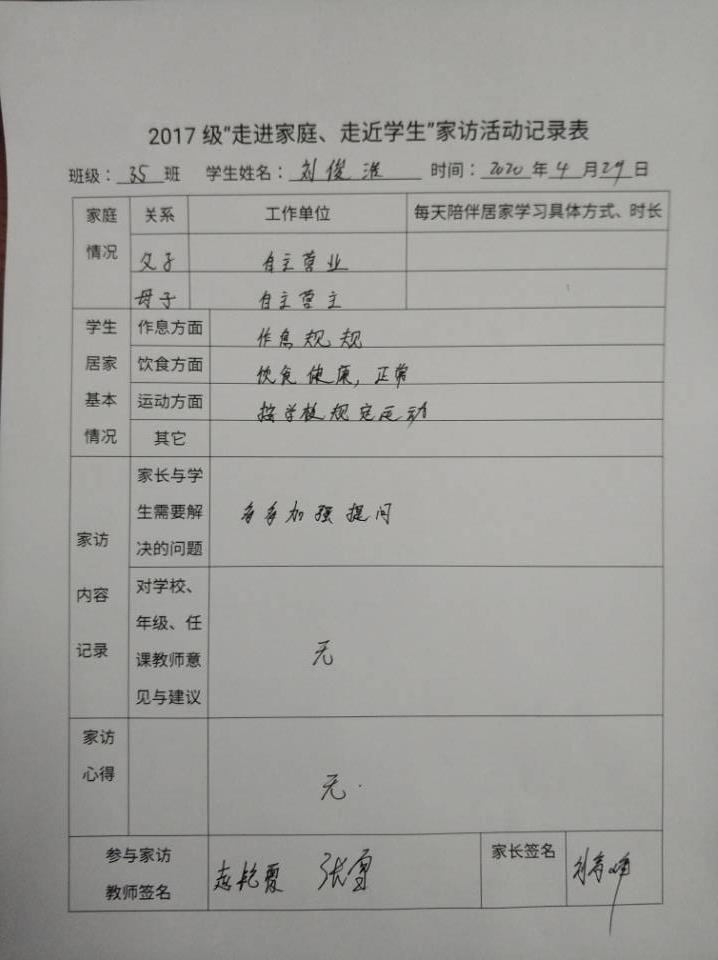 2017 级“走进家庭、走近学生”家访活动记录表
班级：35班 学生姓名：刘俊淮 时间：2020年4月29日
家庭情况 关系 工作单位 每天陪伴居家学习具体方式、时长
父子 自主营业
母子 自主营主
学生居家基本情况 作息方面 作息规规
饮食方面 饮食健康，正常
运动方面 按学校规定运动
其它
家访内容记录 家长与学生需要解决的问题 多多加强提问
对学校、年级、任课教师意见与建议 无
家访心得 无.
参与家访教师签名 张雪 家长签名